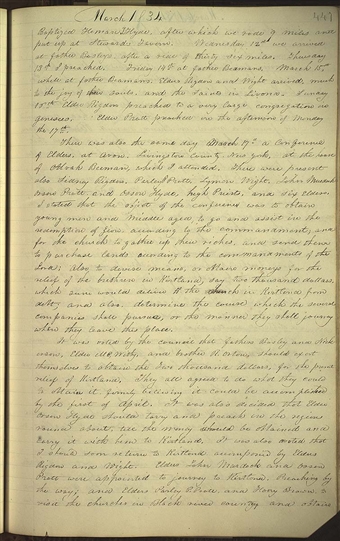 March 1834 447
baptized Heman Hyde, after which we rode 9 miles and
put up at Stewards Tavern. Wednesday 12th we arrived
at father Bosleys, after a ride of thirty six miles. Thursday
13th I preached. Friday 14th at father Beamans. March 15th
while at father Beamans, Elders Rigdon and Wight arrived, much
to the joy of their souls, and the Saints in Livonia. Sunday
16th Elder Rigdon preached to a very large congregation in
Geneseo. Elder Pratt preached in the afternoon of Monday
the 17th.
There was also the same day March 17th a Conference
of Elders, at Avon, Livingston County, New York, at the house
of Alvah Beaman, which I attended. There were present
also Sidney Rigdon, Parley Pratt, Lyman Wight, John Murdock
Orson Pratt, and Orson Hyde, high Priests, and six elders.
I stated that the object of the conference was to obtain
young men and middle aged, to go and assist in the
redemption of Zion, according to the commandment; and
for the church to gather up their riches, and send them
to purchase lands according to the commandments of the
Lord; Also to devise means, or obtain moneys for the
relief of the brethren in Kirtland, say two thousand dollars,
which sum would deliver the church in Kirtland from
debt; and also determine the course which the several
companies shall pursue, or the manner they shall journey
when they leave this place.
It was voted by the council that fathers Bosley and Nick
erson, Elder McWithy, and brother R. Orton, should exert
themselves to obtain the two thousand dollars, for the present
relief of Kirtland. They all agreed to do what they could
to obtain it, firmly believing it could be accomplished
by the first of April. It was also decided that Elder
Orson Hyde should tarry and preach in the regions
round about, till the money should be obtained and
carry it with him to Kirtland. It was also voted that
I should soon return to Kirtland accompanied by Elders
Rigdon and Wight. Elders John Murdock and Orson
Pratt were appointed to journey to Kirtland, Preaching by
the way; and Elders Parley P. Pratt, and Henry Brown, to
visit the churches in Black river country, and obtain